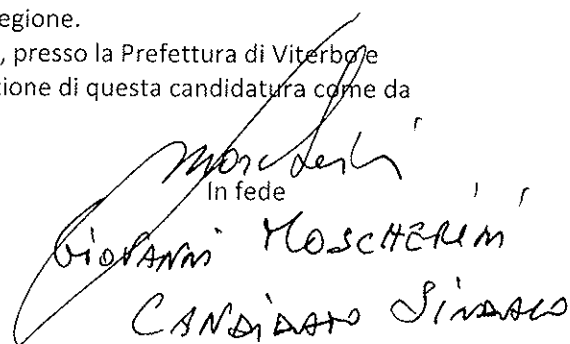 egione.
, presso la Prefettura di Viterbo e
zione di questa candidatura come da
Moscherini
In fede
GIOVANNI MOSCHERINI
CANDIDATO SINDACO